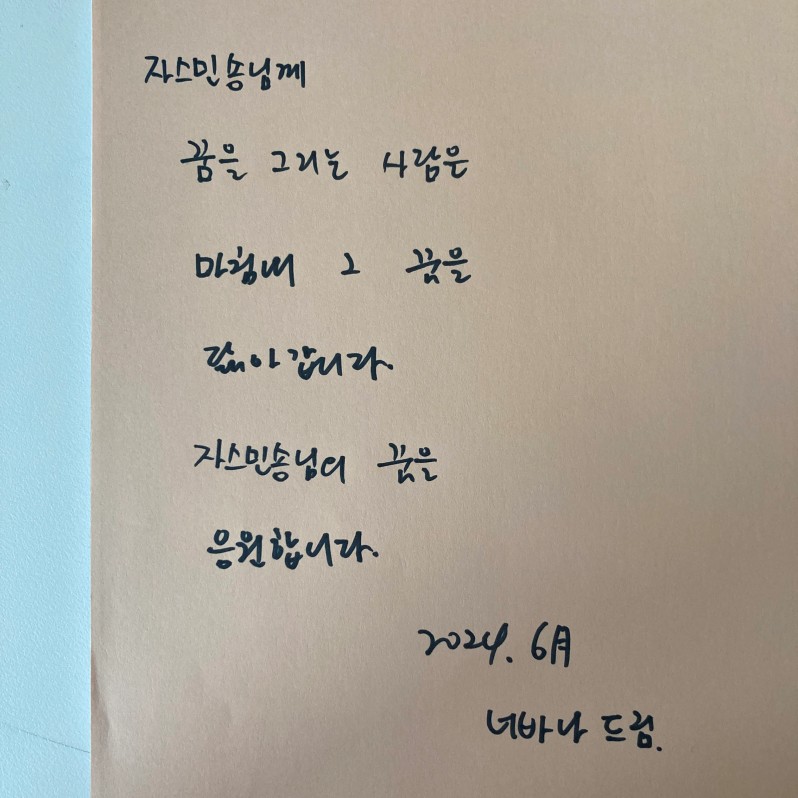 자스민송님께
꿈을 그리는 사람은
마침내 그 꿈을
닮아갑니다.
자스민송님의 꿈을
응원합니다.
2024. 6月
너바나 드림.